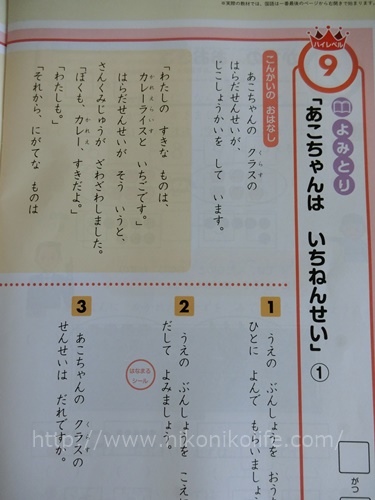 ※実際の教材では、国語は一番最後のページから右開きで始まります。
ハイレベル
9
よみとり
「あこちゃんは いちねんせい」①
がつ
こんかいの おはなし
あこちゃんの クラスの
くらす
はらだせんせいが、
じこしょうかいを して います。
「わたしの すきな ものは、
カレーライスと いちごです。」
かれえらいす
はらだせんせいが そう いうと、
さんくみじゅうが ざわざわしました。
「ぼくも、カレー、すきだよ。」
かれえ
「わたしも。」
「それから、にがてな ものは
1
うえの ぶんしょうを おう
ひとに よんで もらいましょ
2
うえの ぶんしょうを こえ
だして よみましょう。
はなまる
シール
3
あこちゃんの クラスの
くらす
せんせいは だれですか。
http://www.nikonikolife.com/